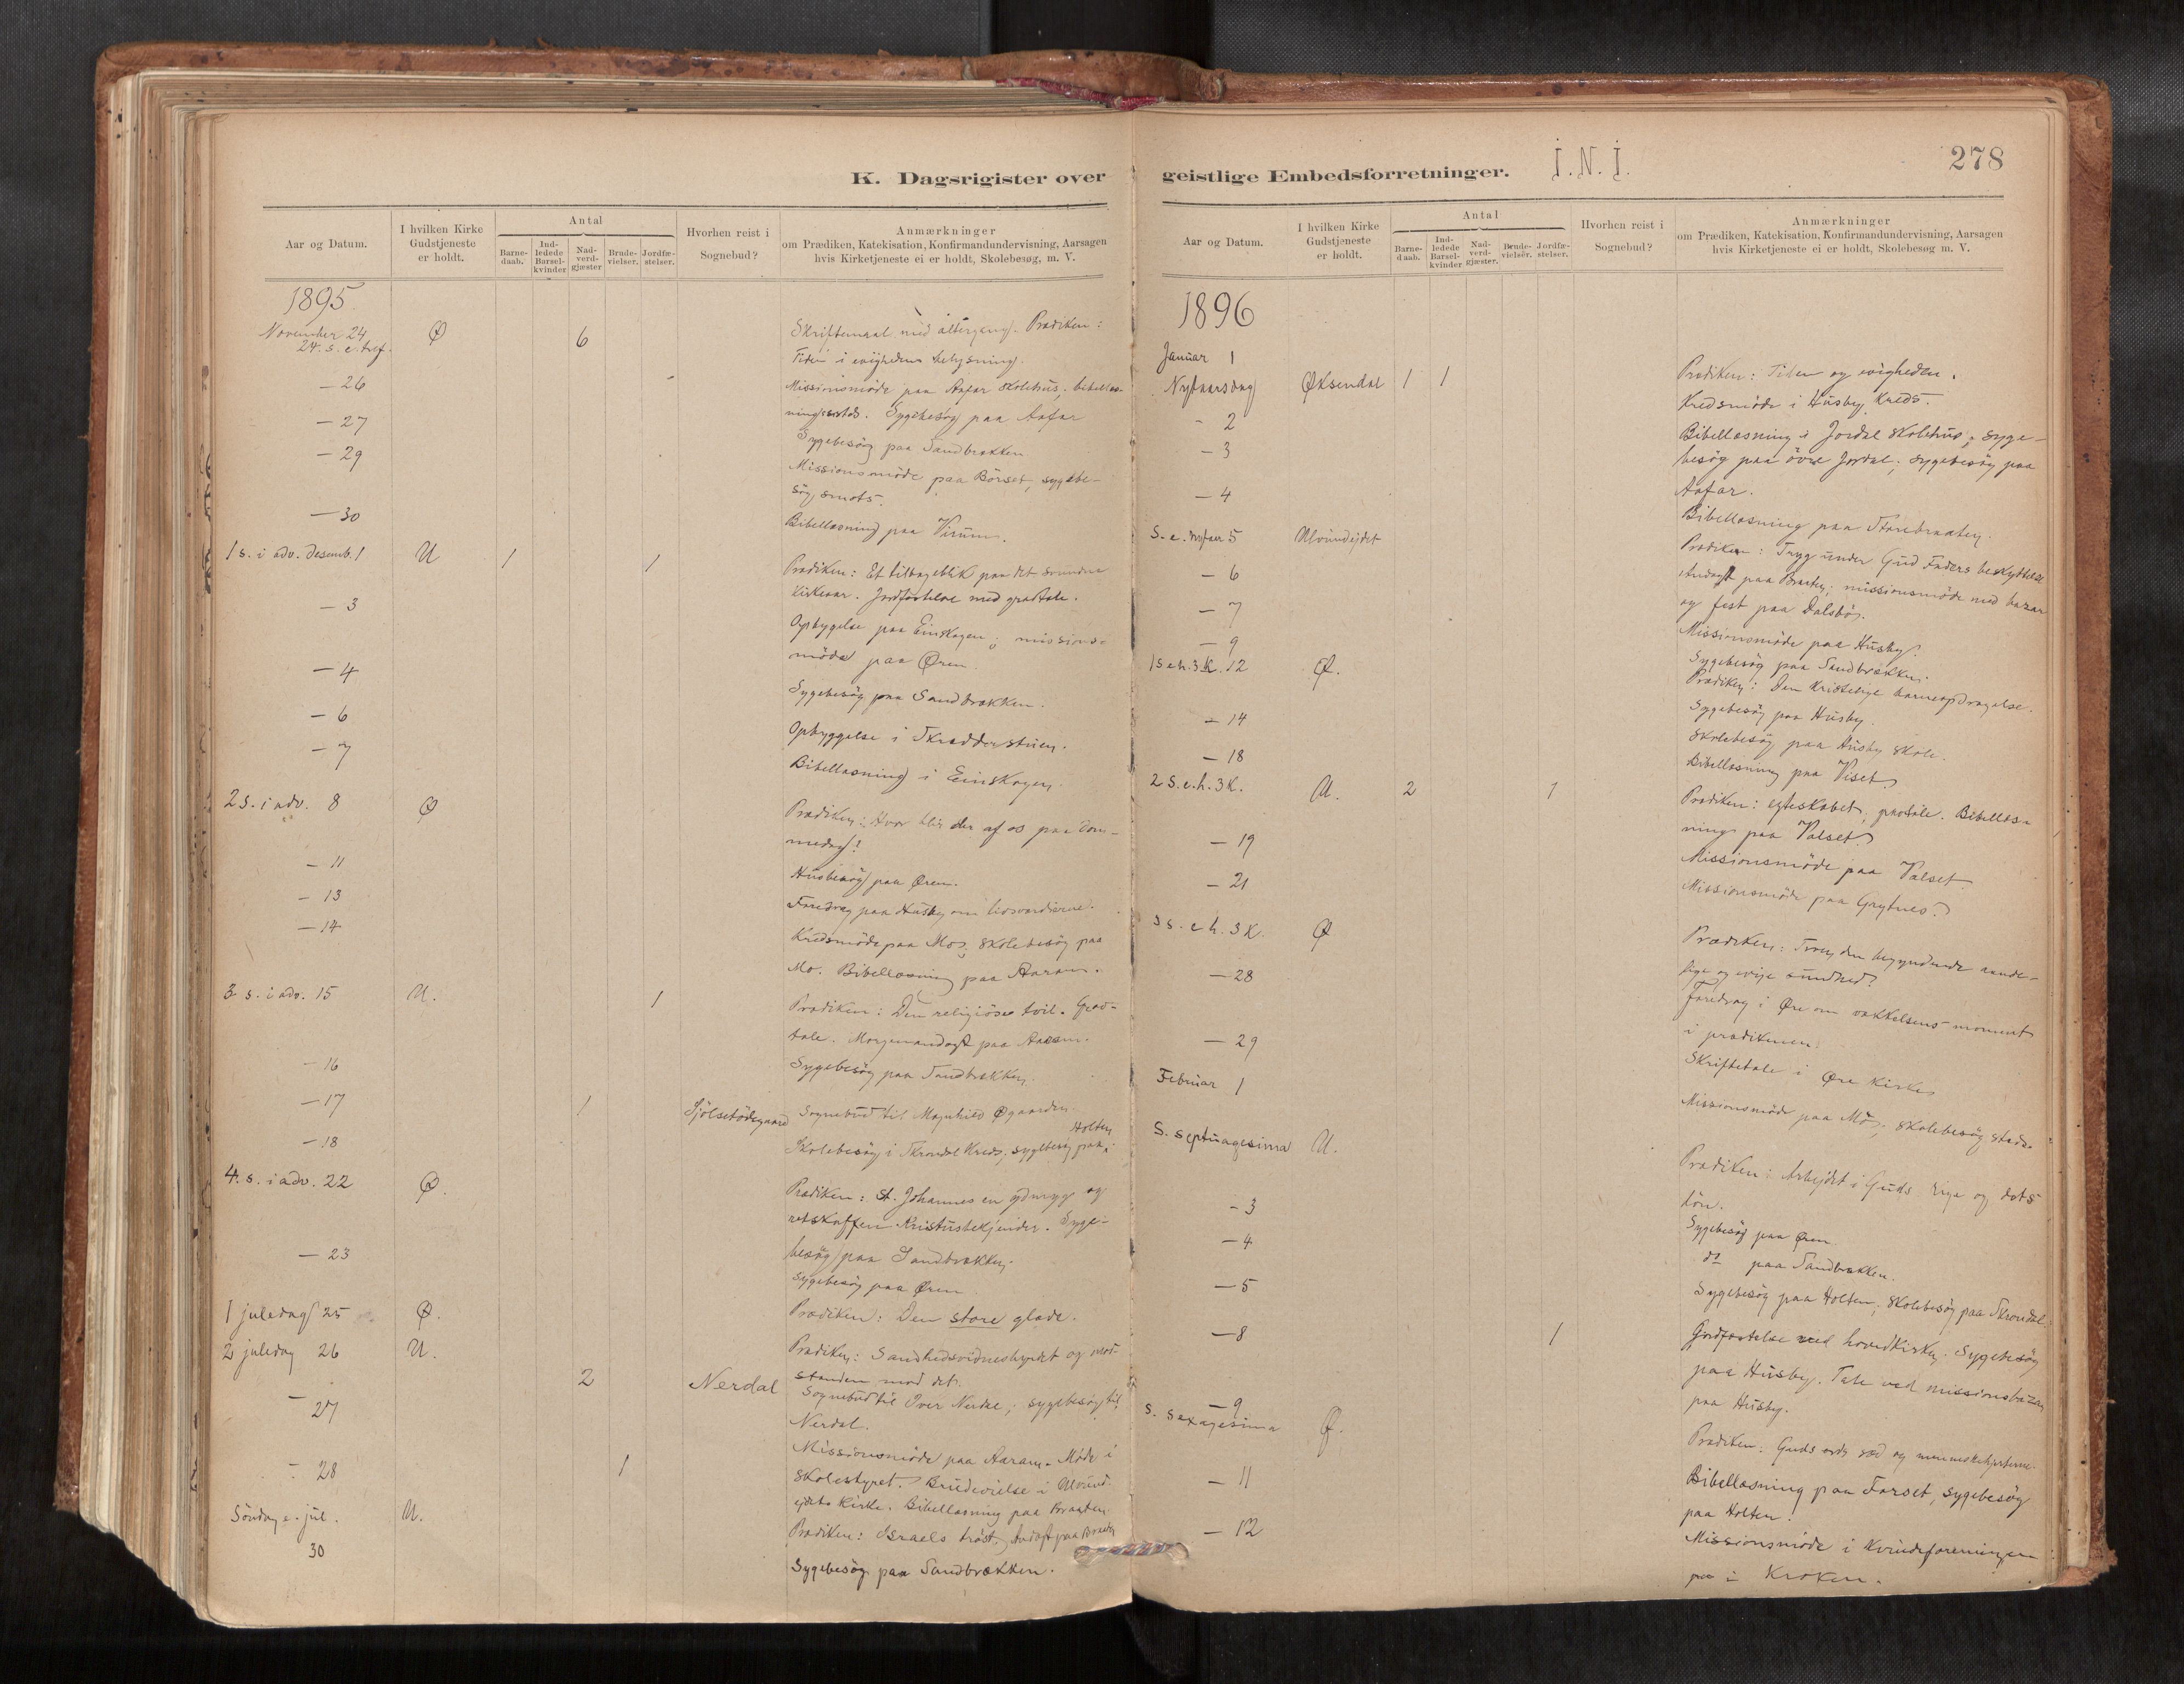 K. Dagsrigister over
Aar og Datum.
I hvilken Kirke Gudstjeneste er holdt.
Antal
Barne-daab.
Ind-ledede Barsel-kvinder
Nad-verd-gjæster
Brude-vielser.
Jordfæ-stelser.
Hvorhen reist i Sognebud?
Anmærkninger
om Prædiken, Katekisation, Konfirmandundervisning, Aarsagen
hvis Kirketjeneste ei er holdt, Skolebesøg, m. V.
1895
November 24 Ø 6 Skriftemaal med altergang. Prædiken:
24. s. e. tref. Tiden i evighedens belysning.
— 26 Missionsmöde paa Aafar skolehus,
— 27 Sygebesög paa Aafar
— 29 Sygebesög paa Sandbrækken
Missionsmöde paa Börset, sygebe-
sög
— 30 Bibellæsning paa
1 s. i adv. desemb. 1 U 1 1 Prædiken: Et tilbageblik paa det svundne
kirkeaar. Jordfæstelse med gravtale.
— 3 Opbygelse paa Einskagen; missions-
möde paa Øren.
— 4 Sygebesög paa Sandbrækken.
— 6 Opbyggelse i Skredderstuen.
— 7 Bibellæsning i Einskagen
2 s. i adv. 8 Ø Prædiken: Hvor blir der af os paa dom-
medag?
— 11 Husbesög paa Øren.
— 13 Foredrag paa Husby om
— 14 Kredsmöde paa Mo; skolebesög paa
Mo. Bibellæsning paa Aaram.
3 s. i adv. 15 U. 1 Prædiken: Den religiöse tvil. Grav-
tale. Morgenandagt paa Aaram.
— 16 Sygebesög paa Sandbrækken.
— 17 1 Sjölsetödegaard Sognebud til Magnhild Øgaarden.
— 18 Skolebesög i Skrondal kreds; sygebesög paa Holten
4. s. i adv. 22 Ø. Prædiken: St. Johannes en ydmyg og
retskaffen Kristusbekjender. Syge-
besög paa Sandbrækken.
— 23 Sygebesög paa Øren
1 juledag 25 Ø. Prædiken: Den store glæde.
2 juledag 26 U. Prædiken: Sandhedsvidnesbyrdet og mot-
standen mod det.
— 27 2 Nerdal Sognebud til Over Nerdal; sygebesög til
Nerdal.
— 28 1 Missionsmöde paa Aaram. Möde i
skolestyret. Brudevielse i Ulvund-
ejdets kirke. Bibellæsning paa Braaten
Söndag e. jul. U. Prædiken: Israels tröst. Andagt paa Braaten
30 Sygebesög paa Sandbrækken.
geistlige Embedsforretninger. I. N. I. 278
Aar og Datum.
I hvilken Kirke Gudstjeneste er holdt.
Antal
Barne-daab.
Ind-ledede Barsel-kvinder
Nad-verd-gjæster.
Brude-vielser.
Jordfæ-stelser.
Hvorhen reist i Sognebud?
Anmærkninger
om Prædiken, Katekisation, Konfirmandundervisning, Aarsagen
hvis Kirketjeneste ei er holdt, Skolebesøg m. V.
1896
Januar 1
Nytaarsdag Øksendal 1 1 Prædiken: Tiden og evigheden.
— 2 Kredsmöde i Husby kreds.
— 3 Bibellæsning i Jordal skolehus; syge-
besög paa övre Jordal; sygebesög paa
Aafar.
— 4 Bibellæsning paa Storebraaten.
S. e. nytaar 5 Ulvundejdet Prædiken: Tryg under Gud Faders beskyttelse
— 6 Andagt paa Braaten; missionsmöde med bazar
og fest paa Dalsbö.
— 7 Missionsmöde paa Husby.
— 9 Sygebesög paa Sandbrækken.
1 s. e. h. 3 K. 12 Ø. Prædiken: Den kristelige barneopdragelse.
Sygebesög paa Husby.
— 14 Skolebesög paa Husby skole.
— 18 Bibellæsning paa Viset
2 S. e. h. 3 K. U. 2 1 Prædiken: egteskabet, gravtale. Bibellæs-
ning paa Valset
— 19 Missionsmöde paa Valset
— 21 Missionsmöde paa Grytnes.
3 s. e. h. 3 K. Ø Prædiken: Troen den begyndende aande-
lige og evige sundhed?
— 28 Foredrag i Øre om vækkelsens moment
i prædikenen.
— 29 Skriftetale i Øre kirke
Februar 1 Missionsmöde paa Mo; skolebesög steds.
S. septuagesima U. Prædiken: Arbejdet i Guds rige og dets
lön.
— 3 Sygebesög paa Øren
— 4 do paa Sandbrækken.
— 5 Sygebesög paa Holten; skolebesög paa Skrondal.
— 8 1 Jordfæstelse ved hovedkirken. Sygebesög
paa Husby. Tale ved missionsbazar
paa Husby.
— 9
S. sexagesima Ø. Prædiken: Guds ords sæd og menneskehjerterne.
— 11 Bibellæsning paa Forset, sygebesög
paa Holten.
— 12 Missionsmöde i kvindeforeningen
i Kroken.